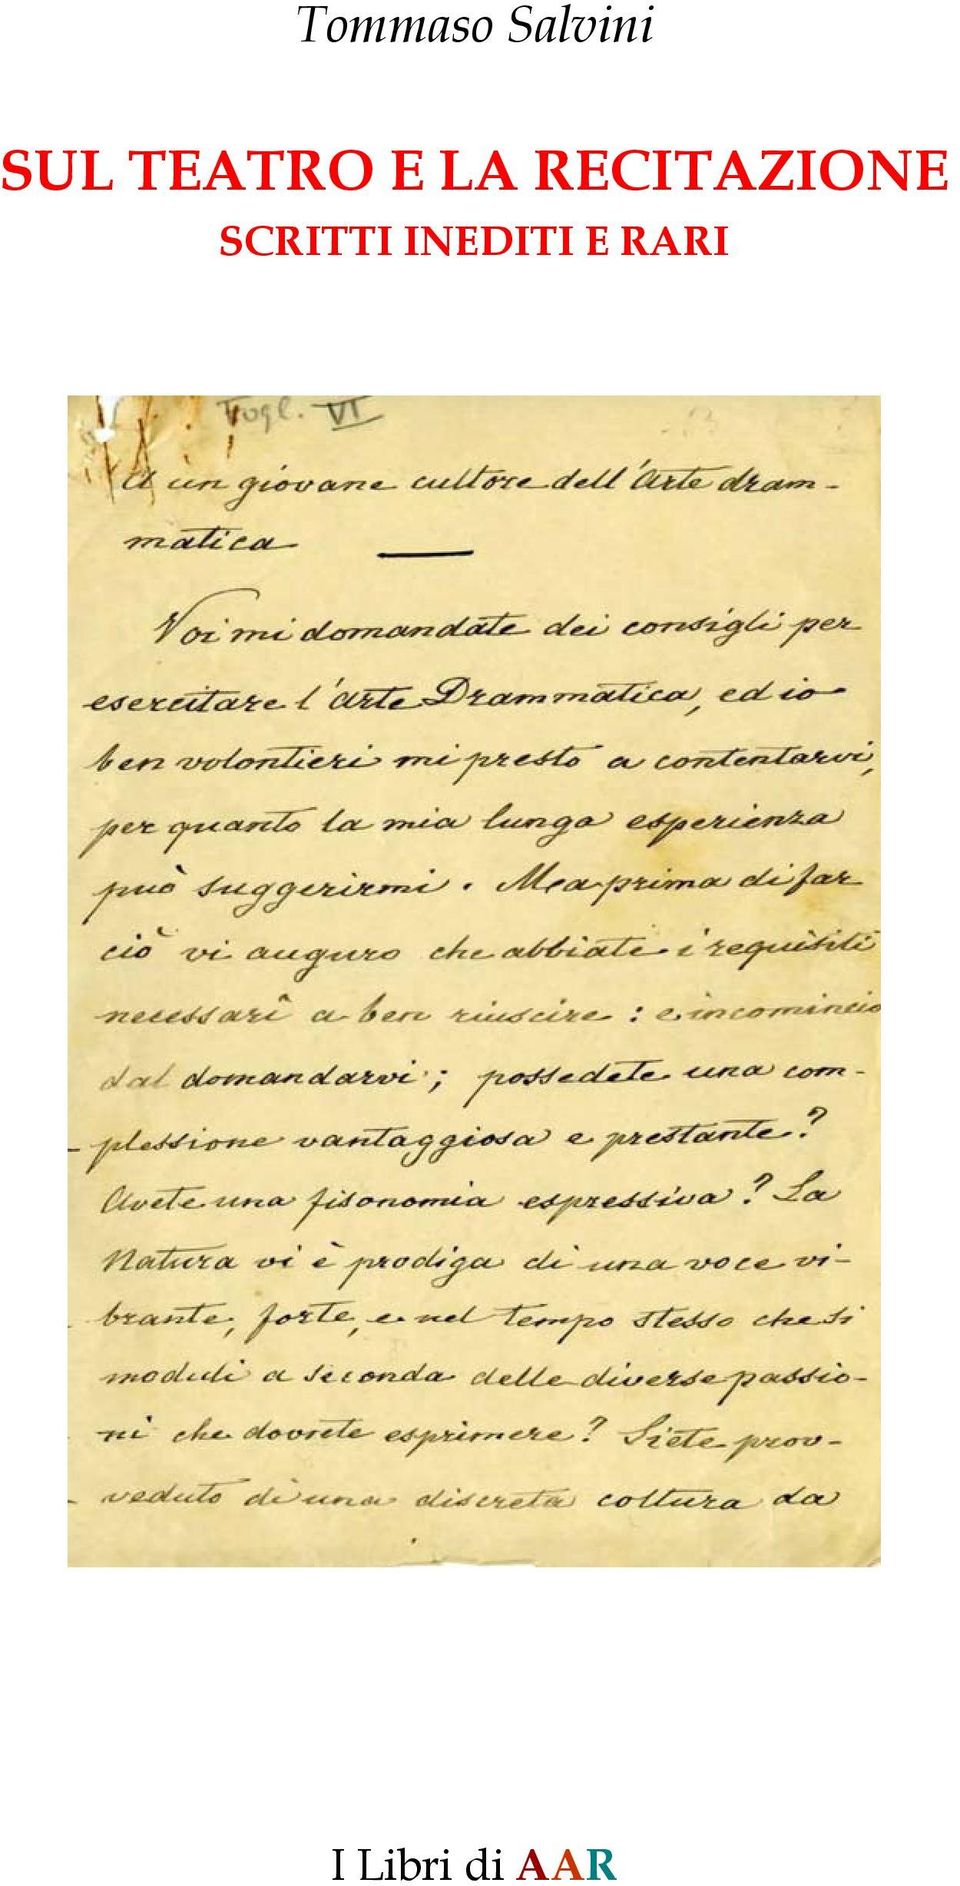 Tommaso Salvini
SUL TEATRO E LA RECITAZIONE
SCRITTI INEDITI E RARI
Fogl. VI
A un giovane cultore dell'Arte dram-
matica
Voi mi domandate dei consigli per
esercitare l'Arte Drammatica, ed io
ben volontieri mi presto a contentarvi,
per quanto la mia lunga esperienza
può suggerirmi. Ma prima di far
ciò vi auguro che abbiate i requisiti
necessarî a ben riuscire: e incomincio
dal domandarvi; possedete una com-
-plessione vantaggiosa e prestante?
Avete una fisonomia espressiva? La
Natura vi è prodiga di una voce vi-
-brante, forte, e nel tempo stesso che si
moduli a seconda delle diverse passio-
-ni che dovrete esprimere? Siete prov-
-veduto di una discreta coltura da
I Libri di AAR